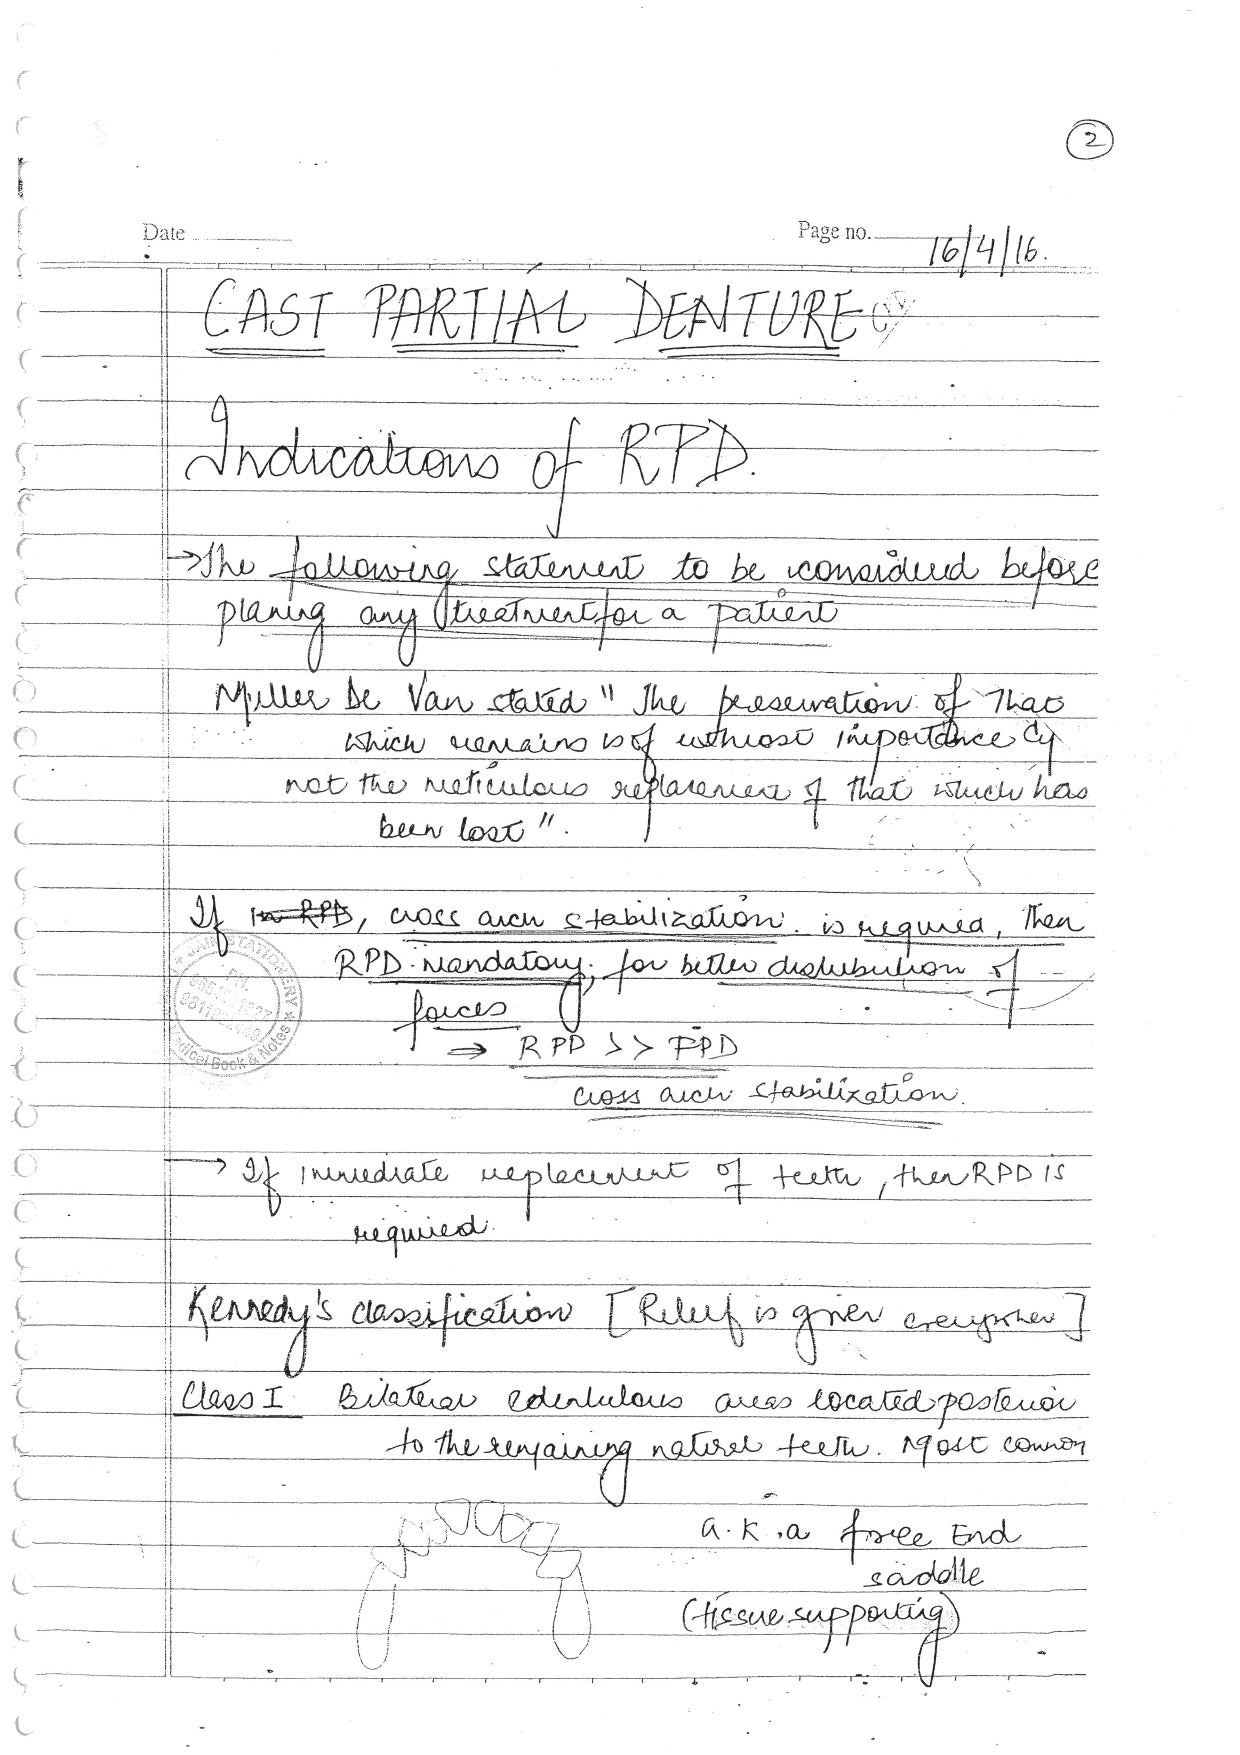 2
Date
Page no.
16/4/16.
CAST PARTIAL DENTURE
Indications of RPD.
→The following statement to be considered before
planing any treatment for a patient
Muller De Van stated " The preservation of that
which remains is of utmost importance &
not the meticulous replacement of that which has
been lost ".
If in RPD, cross arch stabilization is required, then
RPD mandatory, for better distribution of
forces
⇒ RPD >> FPD
cross arch stabilization.
→ If immediate replacement of teeth, then RPD is
required.
Kennedy's classification [Relief is given everywhere]
Class I Bilateral edentulous areas located posterior
to the remaining natural teeth. Most common
a.k.a free End
saddle
(tissue supporting)
STATIONERY
PH.
Medical Book & Notes